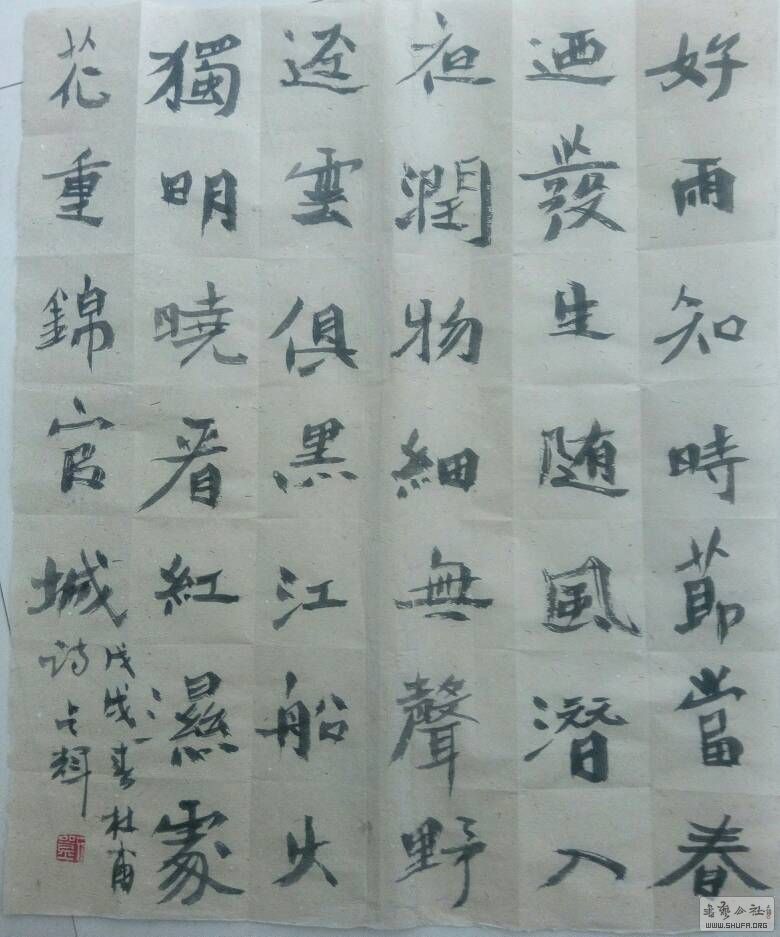 好雨知時節當春
迺發生随風潛入
夜潤物細無聲野
逕雲俱黑江船火
獨明曉看紅濕處
花重錦官城
戊戌春杜甫
詩
書藝公社
WWW.SHUFA.ORG